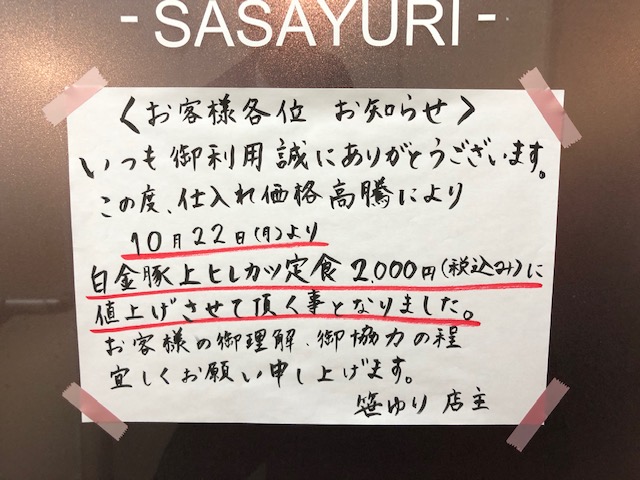 - SASAYURI -
〈お客様各位 お知らせ〉
いつも御利用誠にありがとうございます。
この度、仕入れ価格高騰により
10月22日(月)より
白金豚上ヒレカツ定食2,000円(税込み)に
値上げさせて頂く事となりました。
お客様の御理解、御協力の程
宜しくお願い申し上げます。
笹ゆり 店主